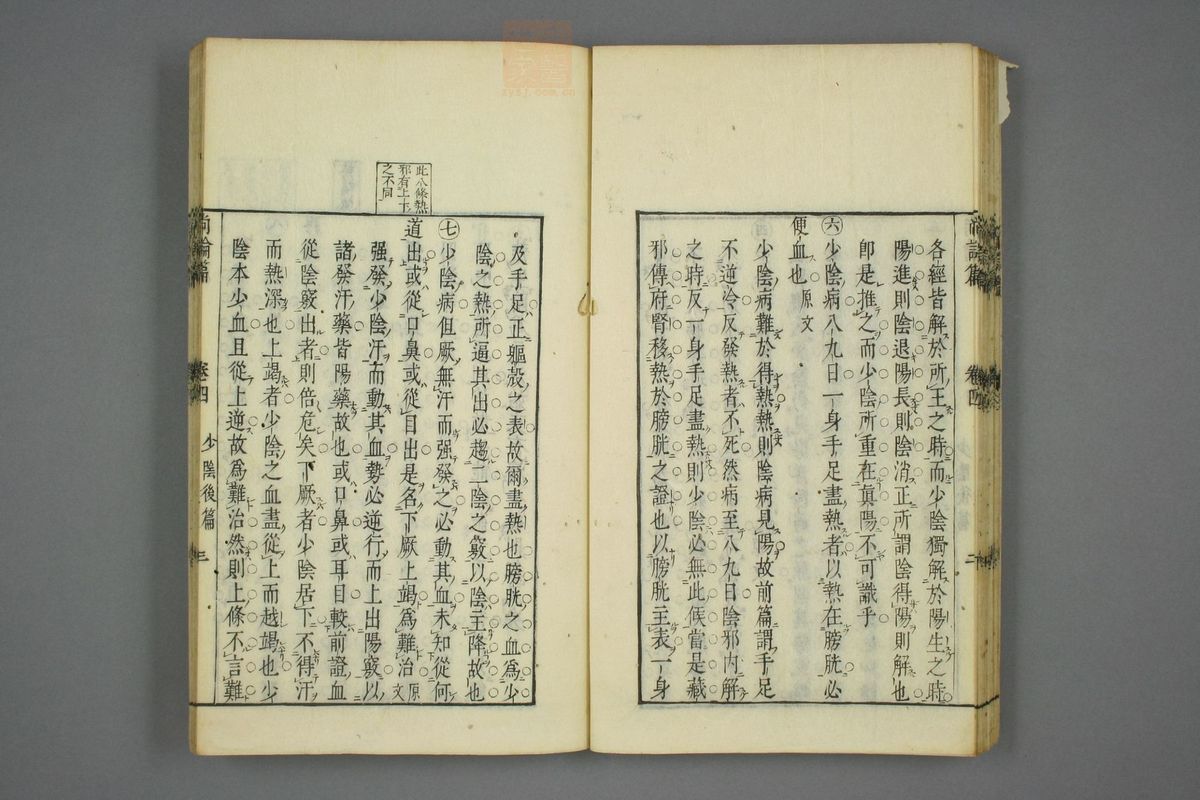 各經皆解於所王之時而少陰獨解於陽生之時
陽進則陰退陽長則陰消正所謂陰得陽則解也
卽是推之而少陰所重在眞陽不可識乎
㊅少陰病八九日一身手足盡熱者以熱在膀胱必
便血也原文
少陰病難於得熱熱則陰病見陽故前篇謂手足
不逆冷反發熱者不死然病至八九日陰邪內解
之時反一身手足盡熱則少陰必無此候當是藏
邪傳府腎移熱於膀胱之證也以膀胱主表一身
尚論篇 卷四 二
及手足正軀殼之表故爾盡熱也膀胱之血爲少
陰之熱所逼其出必趨二陰之竅以陰主降故也
㊆少陰病但厥無汗而强發之必動其血未知從何
道出或從口鼻或從目出是名下厥上竭爲難治原文
强發少陰汗而動其血勢必逆行而上出陽竅以
諸發汗藥皆陽藥故也或口鼻或耳目較前證血
從陰竅出者則倍危矣下厥者少陰居下不得汗
而熱深也上竭者少陰之血盡從上而越竭也少
陰本少血且從上逆故爲難治然則上條不言難
此八條熱
邪有上下
之不同
尚論篇 卷四 少陰後篇 三
zysj.com.cn